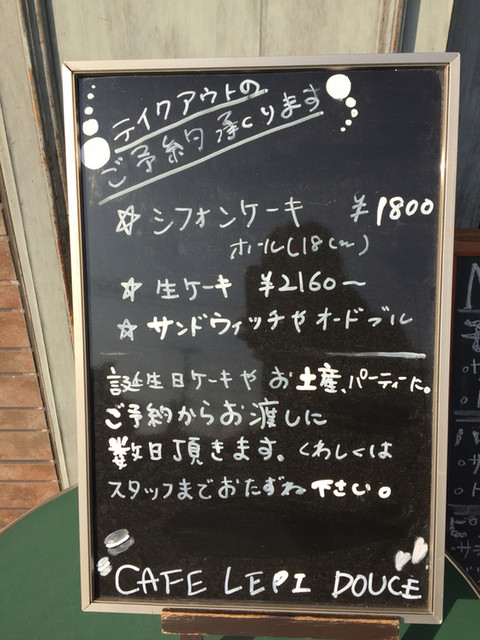 テイクアウトの
ご予約承くります
☆ シフォンケーキ ¥1800
ホール(18cm)
☆ 生ケーキ ¥2160〜
☆ サンドウィッチやオードブル
誕生日ケーキやお土産、パーティーに。
ご予約からお渡しに
数日頂きます。くわしくは
スタッフまでおたずね下さい。
CAFE LEPI DOUCE